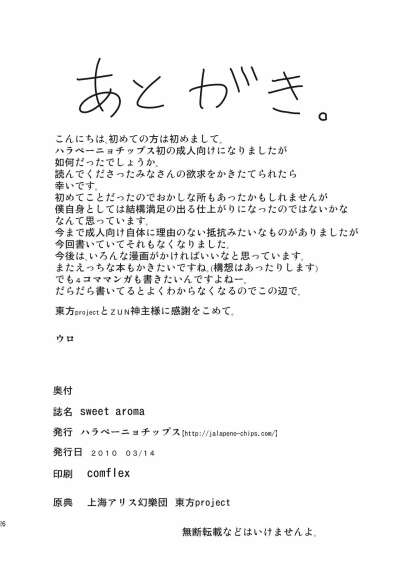 あとがき。
こんにちは、初めての方は初めまして。
ハラペーニョチップス初の成人向けになりましたが
如何だったでしょうか。
読んでくださったみなさんの欲求をかきたてられたら
幸いです。
初めてことだったのでおかしな所もあったかもしれませんが
僕自身としては結構満足の出る仕上がりになったのではないかな
なんて思っています。
今まで成人向け自体に理由のない抵抗みたいなものがありましたが
今回書いていてそれもなくなりました。
今後は、いろんな漫画がかければいいなと思っています。
またえっちな本もかきたいですね。(構想はあったりします)
でも4コママンガも書きたいんですよねー。
だらだら書いてるとよくわからなくなるのでこの辺で。
東方projectとZUN神主様に感謝をこめて。
ウロ
奥付
誌名 sweet aroma
発行 ハラペーニョチップス【http://jalapeno-chips.com/】
発行日 2010 03/14
印刷 comflex
原典 上海アリス幻樂団 東方project
無断転載などはいけませんよ。